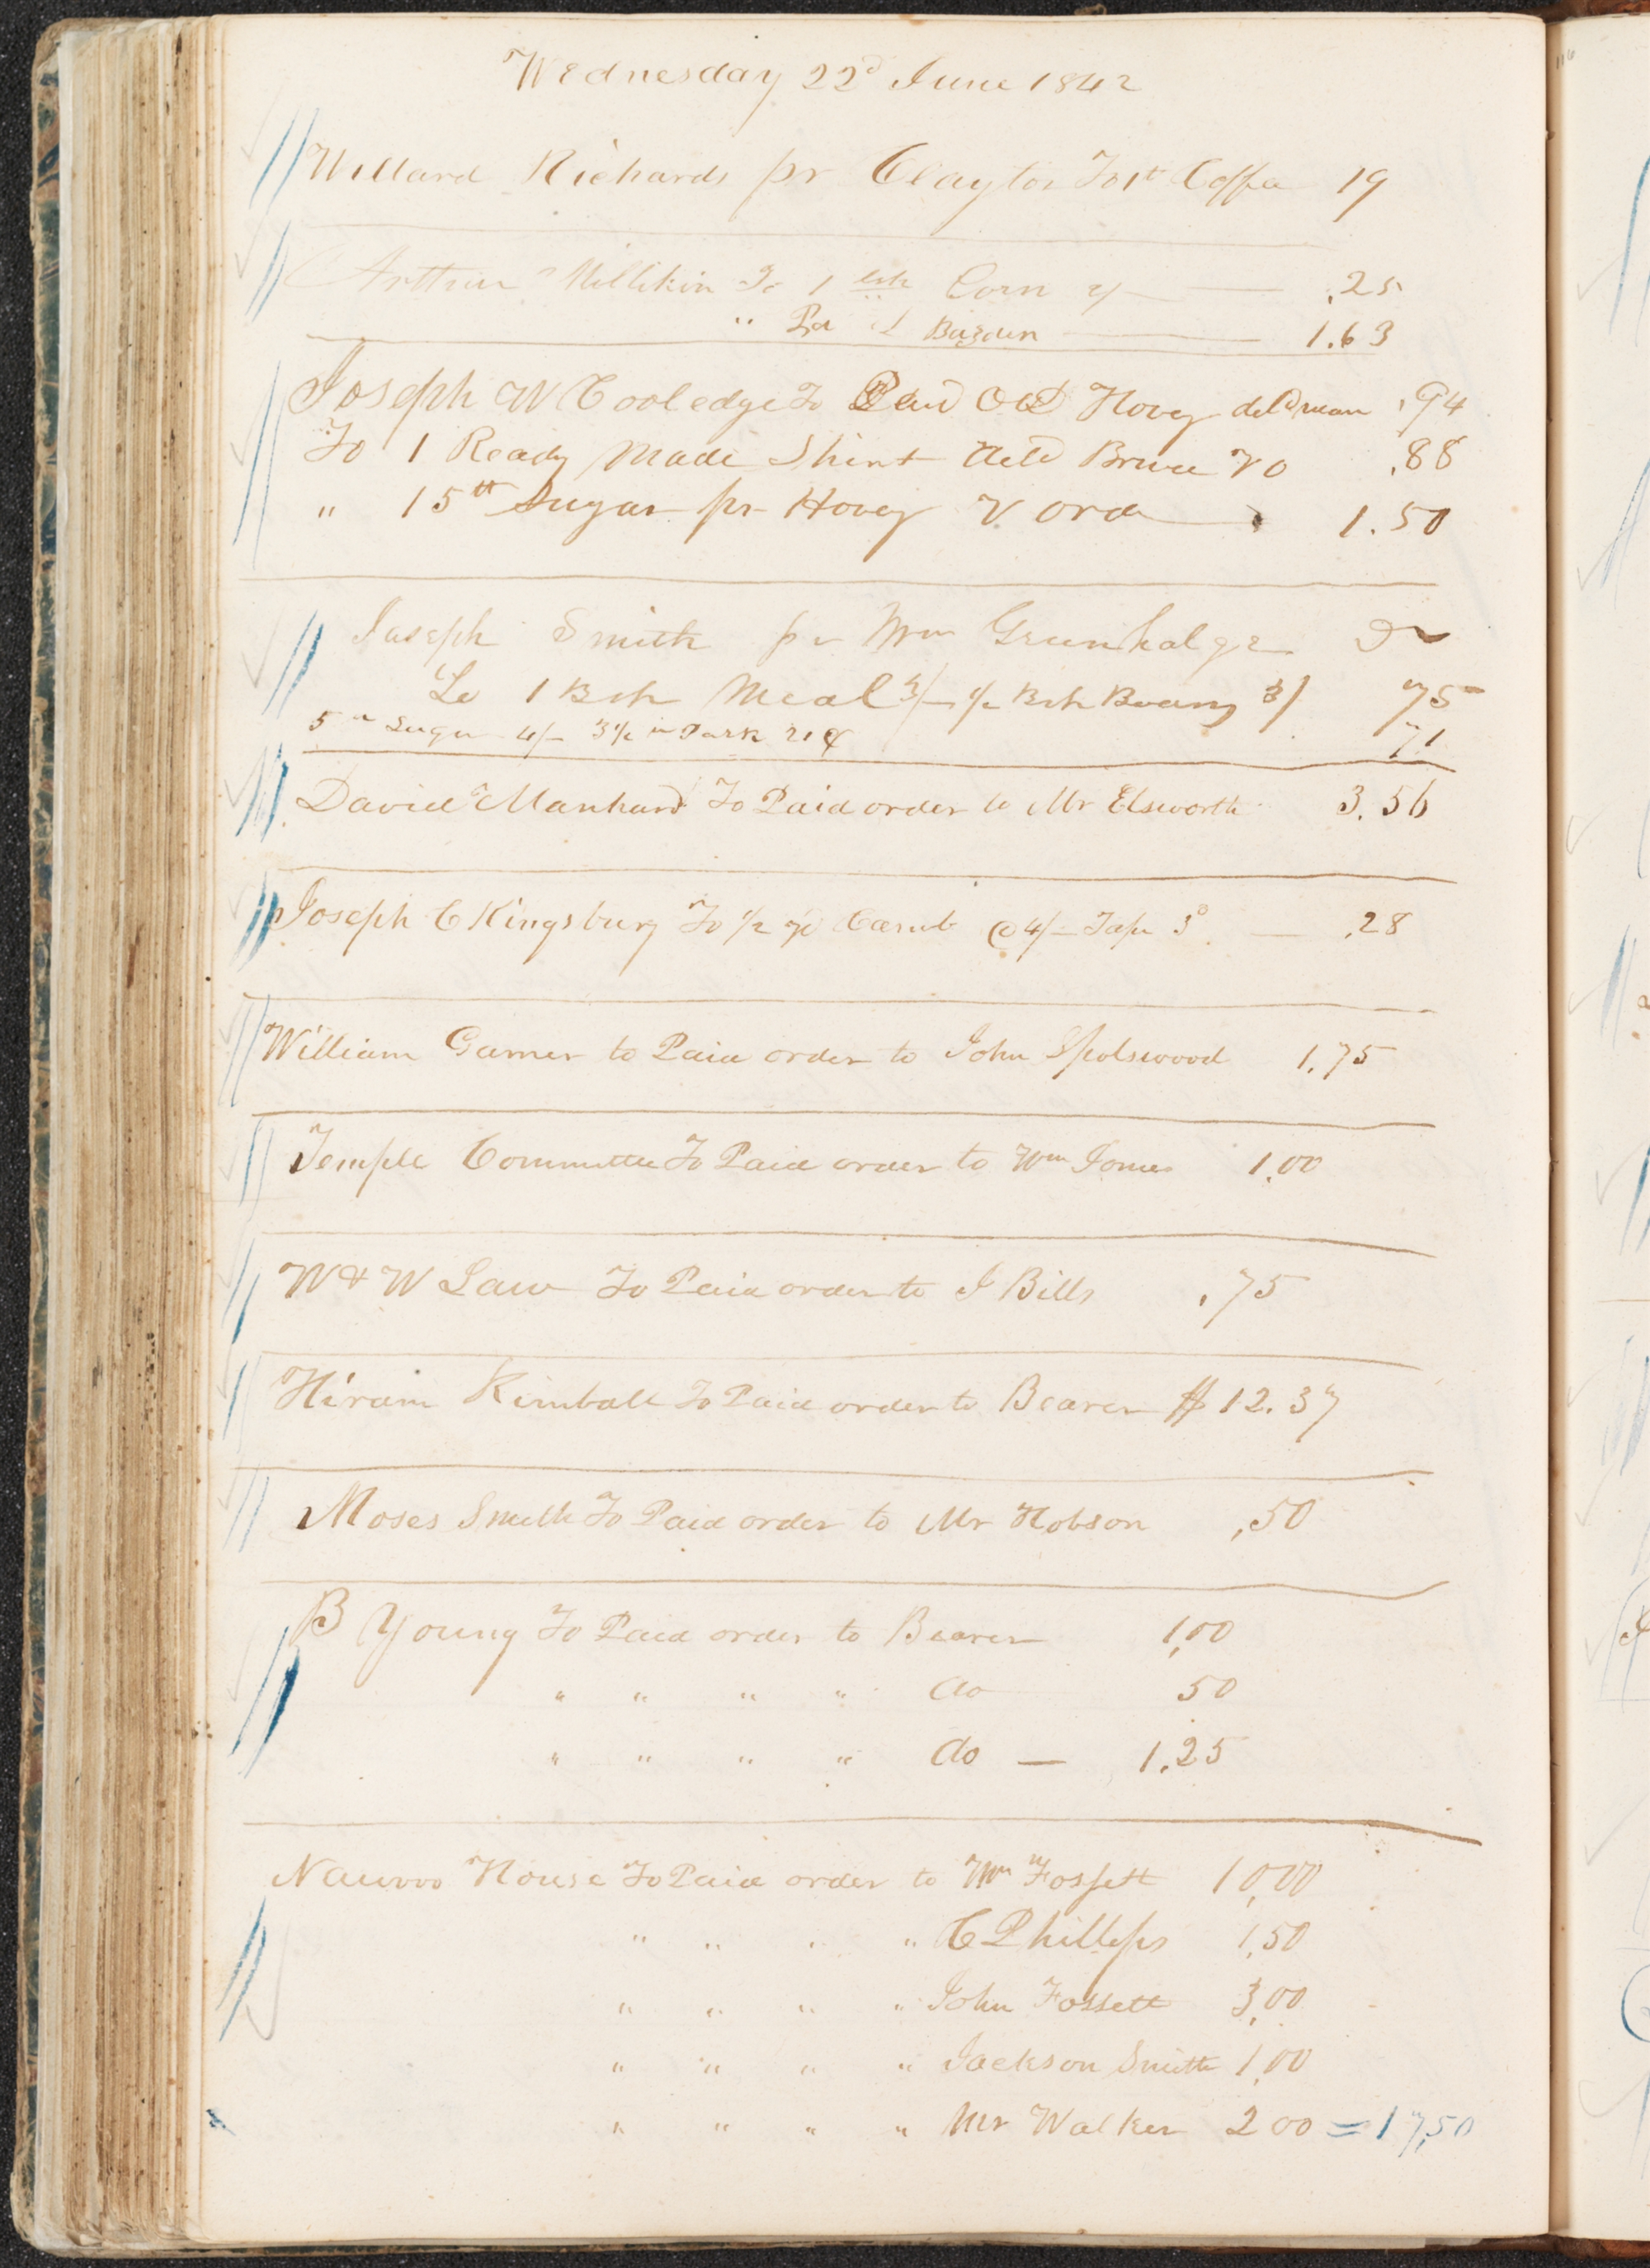 Wednesday 22d June 1842
Willard Richards pr Clayton To 1 lb Coffee 19
Arthur Millikin To 1 bsh Corn 2/— .25
" Pd Bogden 1.63
Joseph W Cooledge To Paid Od Hovey .94
To 1 Ready Made Shirt Deld Bruce VO .88
" 15 lb Sugar pr Hovey V Ord 1.50
Joseph Smith pr Wm Greenhalge Dr
To 1 Bsh Meal 3/— 1/2 Bsh Beans 3/ 75
5 lb Sugar 4/— 3 1/2 lb Pork 21¢ 71
David Manhard To Paid order to Mr Elsworth 3.56
Joseph C Kingsbury To 1/2 yd @ 4/— Tape 3c .28
William Garner to Paid order to John Spolswood 1.75
Temple Committee To Paid order to Wm Jones 1.00
W & W Law To Paid order to J Bills .75
Hiram Kimball To Paid order to Bearer $12.37
Moses Smith To Paid order to Mr Hobson .50
B Young To Paid order to Bearer 1,00
" " " " do 50
" " " " do — 1.25
Nauvoo House To Paid order to Wm Fossett 10,00
" " " " C Phillips 1,50
" " " " John Fossett 3,00
" " " " Jackson Smith 1,00
" " " " Mr Walker 2 00 = 17,50